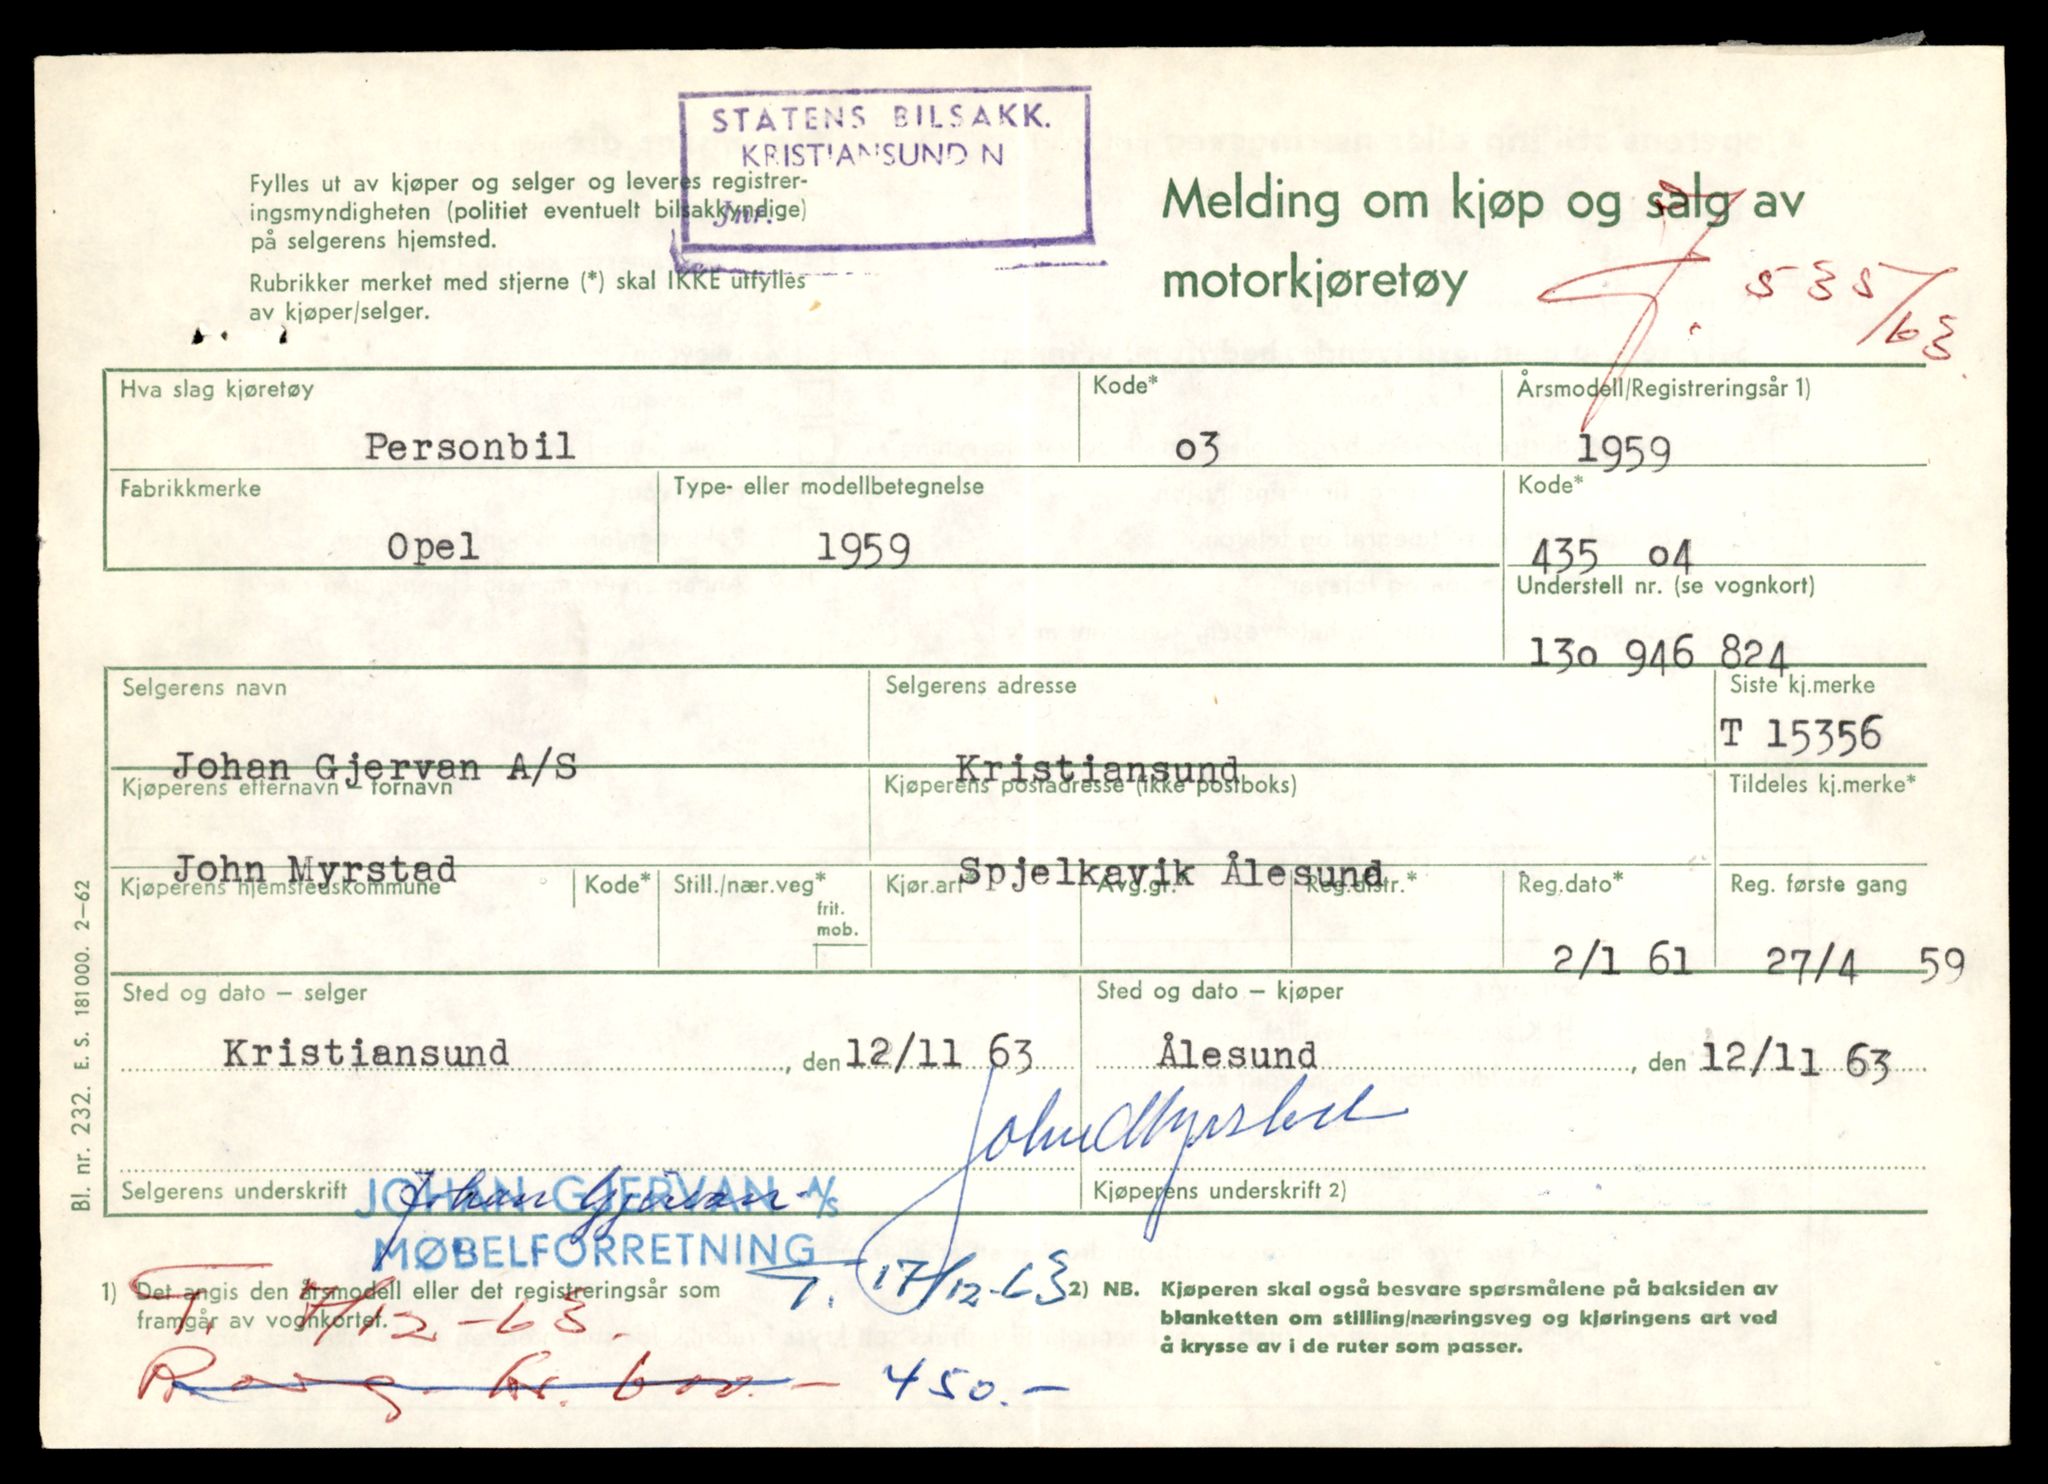 STATENS BILSAKK.
KRISTIANSUND N
Jnr.
Fylles ut av kjøper og selger og leveres registrer-
ingsmyndigheten (politiet eventuelt bilsakkyndige)
på selgerens hjemsted.
Rubrikker merket med stjerne (*) skal IKKE utfylles
av kjøper/selger.
Melding om kjøp og salg av
motorkjøretøy
535/63
Hva slag kjøretøy
Personbil
Kode*
o3
Årsmodell/Registreringsår 1)
1959
Fabrikkmerke
Opel
Type- eller modellbetegnelse
1959
Kode*
435 o4
Understell nr. (se vognkort)
13o 946 824
Selgerens navn
Johan Gjervan A/S
Selgerens adresse
Kristiansund
Siste kj.merke
T 15356
Kjøperens etternavn – fornavn
John Myrstad
Kjøperens postadresse (ikke postboks)
Spjelkavik Ålesund
Tildeles kj.merke*
Kjøperens hjemstedskommune
Kode*
Still./nær.veg*
frit.
mob.
Kjør.art*
Avg.gr.*
Reg.distr.*
Reg.dato*
2/1 61
Reg. første gang
27/4 59
Sted og dato – selger
Kristiansund, den 12/11 63
Sted og dato – kjøper
Ålesund, den 12/11 63
John Myrstad
Selgerens underskrift
Johan Gjervan
JOHAN GJERVAN A/S
MØBELFORRETNING
Kjøperens underskrift 2)
T. 17/12-63
1) Det angis den årsmodell eller det registreringsår som
framgår av vognkortet.
T. 7/12-63
2) NB. Kjøperen skal også besvare spørsmålene på baksiden av
blanketten om stilling/næringsveg og kjøringens art ved
å krysse av i de ruter som passer.
kr. 600.- 450.-
Bl. nr. 232. E. S. 181000. 2–62